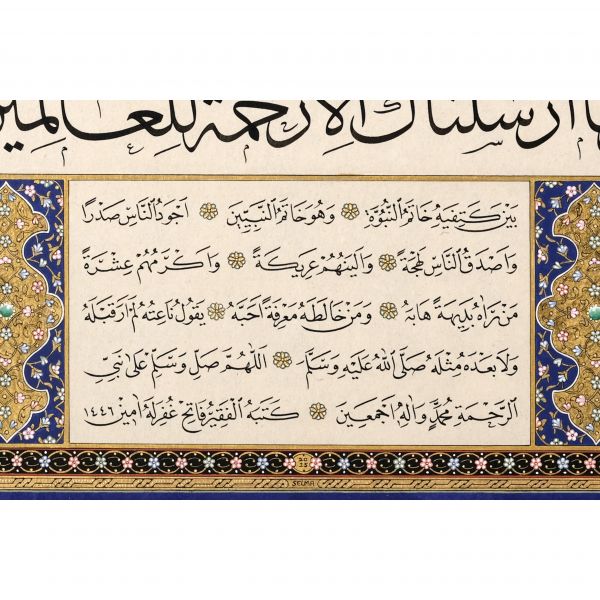 وما ارسلناك الا رحمة للعالمين
بين كتفيه خاتم النبوة وهو خاتم النبيين اجود الناس صدرا
واصدق الناس لهجة والينهم عريكة واكرمهم عشرة
من رآه بديهة هابه ومن خالطه معرفة احبه يقول ناعته لم ار قبله
ولا بعده مثله صلى الله عليه وسلم اللهم صل وسلم على نبي
الرحمة محمد واله اجمعين كتبه الفقير فاتح غفر له امين ١٤٤٦
2025
SELMA